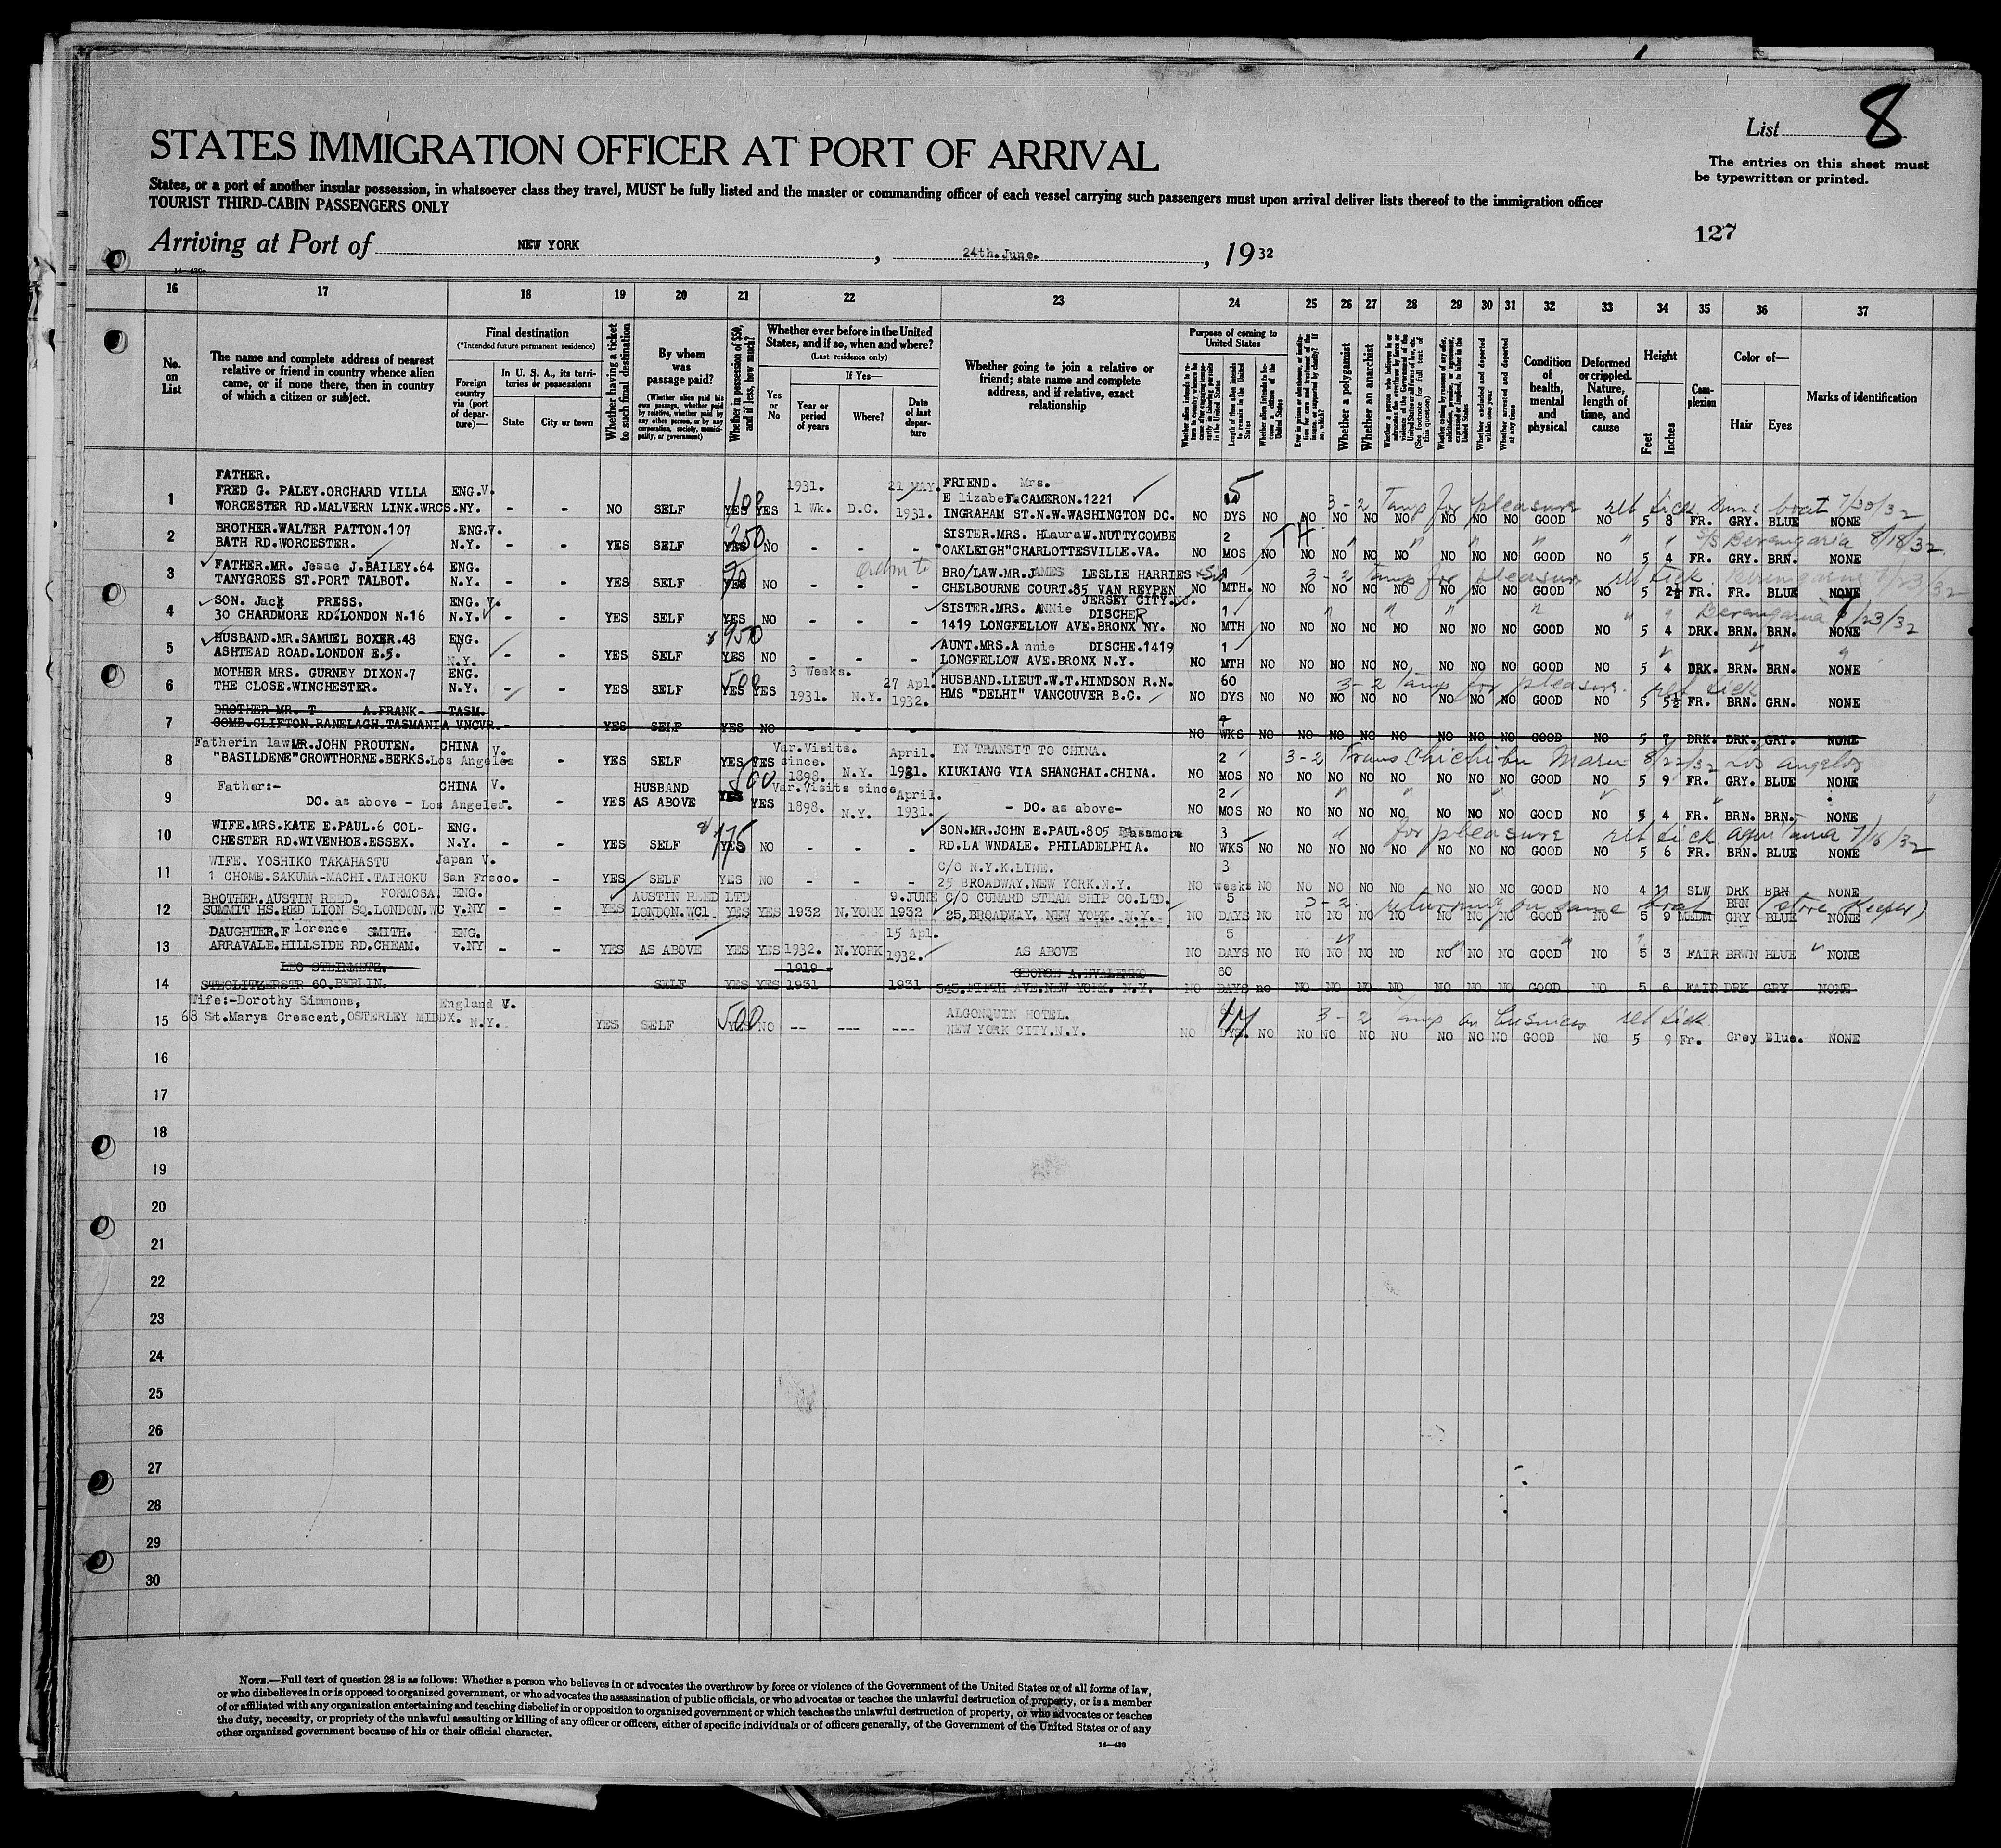 List 8
The entries on this sheet must
be typewritten or printed.
STATES IMMIGRATION OFFICER AT PORT OF ARRIVAL
States, or a port of another insular possession, in whatsoever class they travel, MUST be fully listed and the master or commanding officer of each vessel carrying such passengers must upon arrival deliver lists thereof to the immigration officer
TOURIST THIRD-CABIN PASSENGERS ONLY
127
Arriving at Port of NEW YORK, 24th.June., 1932
16 17 18 19 20 21 22 23 24 25 26 27 28 29 30 31 32 33 34 35 36 37
No. on List
The name and complete address of nearest
relative or friend in country whence alien
came, or if none there, then in country
of which a citizen or subject.
Final destination
(*Intended future permanent residence)
Foreign country via (port of departure)—
In U. S. A., its territories or possessions
State
City or town
Whether having a ticket to such final destination
By whom was passage paid?
(Whether alien paid his own passage, whether paid by relative, whether paid by any other person, or by any corporation, society, municipality, or government)
Whether in possession of $50, and if less, how much?
Whether ever before in the United
States, and if so, when and where?
(Last residence only)
Yes or No
If Yes—
Year or period of years
Where?
Date of last departure
Whether going to join a relative or
friend; state name and complete
address, and if relative, exact
relationship
Purpose of coming to United States
Length of time alien intends to remain in the United States
Whether a polygamist
Whether an anarchist
(See footnote for full text of this question)
Whether arrested and deported at any time
Condition of health, mental and physical
Deformed or crippled. Nature, length of time, and cause
Height
Feet
Inches
Complexion
Color of—
Hair
Eyes
Marks of identification
1 FATHER.
FRED G. PALEY.ORCHARD VILLA ENG.V. 1931. 21 MAY. FRIEND. Mrs.
WORCESTER RD.MALVERN LINK.WRCS. NY. - - NO SELF YES 100 YES 1 Wk. D.C. 1931. Elizabeth.CAMERON.1221
INGRAHAM ST.N.W.WASHINGTON DC. NO 5 DYS NO NO NO NO NO NO NO NO GOOD NO 5 8 FR. GRY. BLUE NONE
3-2 Temp for pleasure ret tick same boat 7/30/32
2 BROTHER.WALTER PATTON.107 ENG.V.
BATH RD.WORCESTER. N.Y. - - YES SELF YES 250 NO - - - SISTER.MRS. Laura W.NUTTYCOMBE
"OAKLEIGH"CHARLOTTESVILLE.VA. NO 2 MOS NO NO NO NO NO NO NO NO GOOD NO 5 4 FR. GRY. BRN. NONE
S/S Berengaria 8/18/32
3 FATHER.MR. Jesse J.BAILEY.64 ENG.
TANYGROES ST.PORT TALBOT. N.Y. - - YES SELF YES NO - - - BRO/LAW.MR.JAMES LESLIE HARRIES
CHELBOURNE COURT.85 VAN REYPEN
JERSEY CITY.NJ. NO 1 MTH. NO NO NO NO NO NO NO NO GOOD NO 5 2½ FR. FR. BLUE NONE
3-2 Temp for pleasure ret tick Berengaria 7/23/32
4 SON. Jack PRESS. ENG. V.
30 CHARDMORE RD:LONDON N.16 N.Y. - - YES SELF YES NO - - - SISTER.MRS. ANNie DISCHER
1419 LONGFELLOW AVE.BRONX NY. NO 1 MTH NO NO NO NO NO NO NO NO GOOD NO 5 4 DRK. BRN. BRN. NONE
Berengaria 7/23/32
5 HUSBAND.MR.SAMUEL BOXER.48 ENG. V
ASHTEAD ROAD.LONDON E.5. N.Y. - - YES SELF YES NO - - - AUNT.MRS.Annie DISCHE.1419
LONGFELLOW AVE.BRONX N.Y. NO 1 MTH NO NO NO NO NO NO NO NO GOOD NO 5 4 DRK. BRN. BRN. NONE
6 MOTHER MRS. GURNEY DIXON.7 ENG. 3 Weeks. 27 Apl.
THE CLOSE.WINCHESTER. N.Y. - - YES SELF YES 500 YES 1931. N.Y. 1932. HUSBAND.LIEUT.W.T.HINDSON R.N.
HMS "DELHI" VANCOUVER B.C. NO 60 DYS NO NO NO NO NO NO NO NO GOOD NO 5 5½ FR. BRN. GRN. NONE
3-2 Temp for pleasure. ret tick
7 BROTHER MR. T A.FRANK TASM.
COMB.CLIFTON.RANELAGH.TASMANIA VNCVR. - - YES SELF YES NO - - - NO WKS NO NO NO NO NO NO NO NO GOOD NO 5 7 DRK. DRK. GRY. NONE
8 Fatherin law MR.JOHN PROUTEN. CHINA V. Var.Visits. April.
"BASILDENE"CROWTHORNE.BERKS. Los Angeles - YES SELF YES YES since. 1898. N.Y. 1931. IN TRANSIT TO CHINA.
KIUKIANG VIA SHANGHAI.CHINA. NO 2 MOS NO NO NO NO NO NO NO NO GOOD NO 5 9 FR. GRY. BLUE NONE
3-2 Trans Chichibu Maru 8/22/32 Los Angeles
9 Father:- CHINA V. HUSBAND Var.Visits since April.
DO. as above - Los Angeles. - YES AS ABOVE YES YES 1898. N.Y. 1931. - DO. as above- NO 2 MOS NO NO NO NO NO NO NO NO GOOD NO 5 4 FR. BRN. BRN. NONE
10 WIFE.MRS.KATE E.PAUL.6 COL- ENG.
CHESTER RD.WIVENHOE.ESSEX. N.Y. - - YES SELF YES 175 NO - - - SON.MR.JOHN E.PAUL.805 Passmore
RD.LAWNDALE. PHILADELPHIA. NO 3 WKS NO NO NO NO NO NO NO NO GOOD NO 5 6 FR. BRN. BLUE NONE
for pleasure ret tick Aquitania 7/16/32
11 WIFE. YOSHIKO TAKAHASTU Japan V.
1 CHOME.SAKUMA-MACHI.TAIHOKU San Frsco. - YES SELF YES NO - - - C/O N.Y.K.LINE.
FORMOSA. 25 BROADWAY.NEW YORK.N.Y. NO 3 weeks NO NO NO NO NO NO NO NO GOOD NO 4 11 SLW DRK BRN NONE
12 BROTHER.AUSTIN REED. ENG. AUSTIN REED LTD 9.JUNE C/O CUNARD STEAM SHIP CO.LTD.
SUMMIT HS.RED LION SQ.LONDON.WC v.NY - - YES LONDON.WC1. YES YES 1932 N.YORK 1932 25,BROADWAY. NEW YORK. N.Y. NO 5 DAYS NO NO NO NO NO NO NO NO GOOD NO 5 9 MEDM BRN GRY BLUE NONE
3-2 returning on same boat (store keeper)
13 DAUGHTER.Florence SMITH. ENG. 15 Apl.
ARRAVALE.HILLSIDE RD.CHEAM. v.NY - - YES AS ABOVE YES YES 1932. N.YORK 1932. AS ABOVE NO 5 DAYS NO NO NO NO NO NO NO NO GOOD NO 5 3 FAIR BRWN BLUE NONE
14 LEO STEINMETZ. 1919 -
STEGLITZERSTR 60.BERLIN. SELF YES YES 1931 1931 GEORGE A.
545.FIFTH AVE.NEW YORK. N.Y. NO 60 DAYS no NO NO NO NO NO NO NO GOOD NO 5 6 FAIR DRK GRY NONE
15 Wife:-Dorothy Simmons, England V.
68 St.Marys Crescent,OSTERLEY MIDDX. N.Y. YES SELF YES 500 NO -- --- --- ALGONQUIN HOTEL.
NEW YORK CITY.N.Y. NO 14 DYS. NO NO NO NO NO NO NO NO GOOD NO 5 9 Fr. Grey Blue. NONE
3-2 Temp on business ret tick
16
17
18
19
20
21
22
23
24
25
26
27
28
29
30
NOTE.—Full text of question 28 is as follows: Whether a person who believes in or advocates the overthrow by force or violence of the Government of the United States or of all forms of law,
or who disbelieves in or is opposed to organized government, or who advocates the assassination of public officials, or who advocates or teaches the unlawful destruction of property, or is a member
of or affiliated with any organization entertaining and teaching disbelief in or opposition to organized government or which teaches the unlawful destruction of property, or who advocates or teaches
the duty, necessity, or propriety of the unlawful assaulting or killing of any officer or officers, either of specific individuals or of officers generally, of the Government of the United States or of any
other organized government because of his or their official character.
14—430